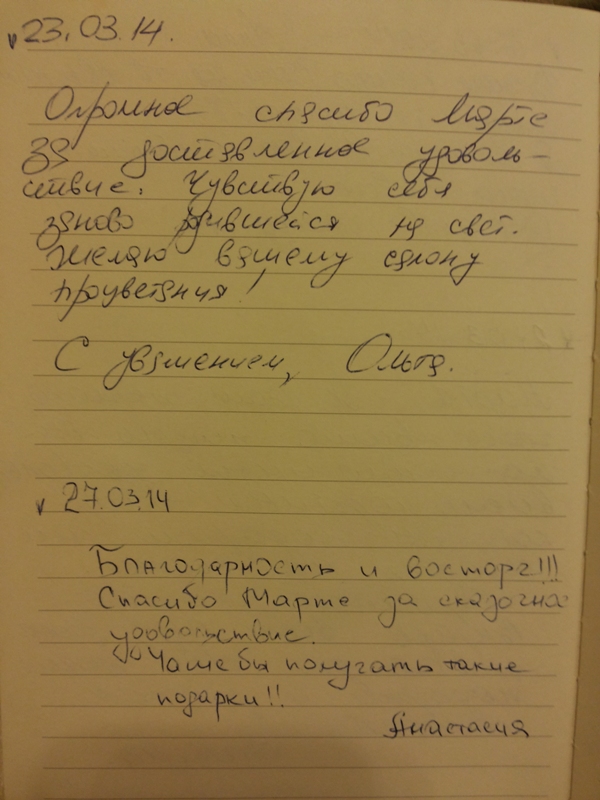 23.03.14.
Огромное спасибо Марте
за доставленное удоволь-
ствие. Чувствую себя
заново родившейся на свет.
Желаю вашему салону
процветания!
С уважением, Ольга.
27.03.14
Благодарность и восторг!!!
Спасибо Марте за сказочное
удовольствие.
Чаще бы получать такие
подарки!!
Анастасия